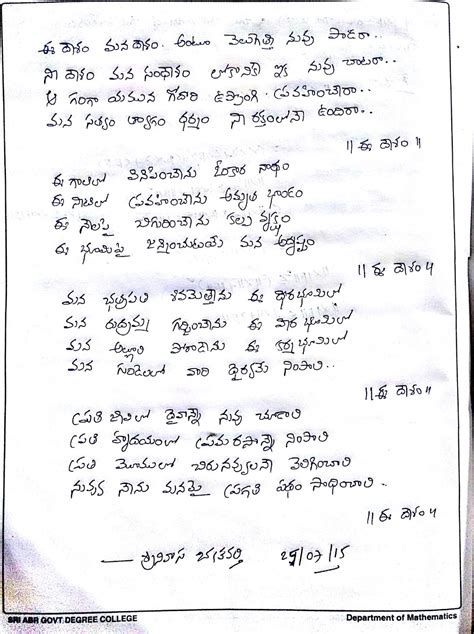 ఈ దేశం మనదేశం. అంటూ వెలుగెత్తి నువ్వు పాడరా..
నీ దేశం మన సందేశం లోకానికే ఇక నువ్వు చాటరా..
ఆ గంగా యమున గోదారి ఉప్పొంగి ప్రవహించెరా..
మన సత్యం త్యాగం ధర్మం నీ రక్తంలోనే ఉందిరా..
॥ ఈ దేశం ॥
ఈ గాలిలో వినిపించెను ఓంకార నాదం
ఈ నీటిలో ప్రవహించెను అమృత భాండం
ఈ నేలపై చిగురించెను కల్ప వృక్షం
ఈ భూమిపై జన్మించుటయే మన అదృష్టం
॥ ఈ దేశం ॥
మన ఛత్రపతి శివమెత్తెను ఈ ధీరభూమిలో
మన రుద్రమ్మ గర్జించెను ఈ వీర భూమిలో
మన అల్లూరి పోరాడెను ఈ కర్మ భూమిలో
మన గుండెలలో వారి ధైర్యమే నింపాలి..
॥ ఈ దేశం ॥
ప్రతి జీవిలో దైవాన్నే నువ్వు చూడాలి
ప్రతి హృదయంలో ప్రేమ రసాన్నే నింపాలి
ప్రతి మోములో చిరునవ్వులనే వెలిగించాలి
నువ్వు నేను మనమై ప్రగతి పథం సాధించాలి..
॥ ఈ దేశం ॥
— శ్రీనివాస 29/07/15
SRI ABR GOVT.DEGREE COLLEGE Department of Mathematics